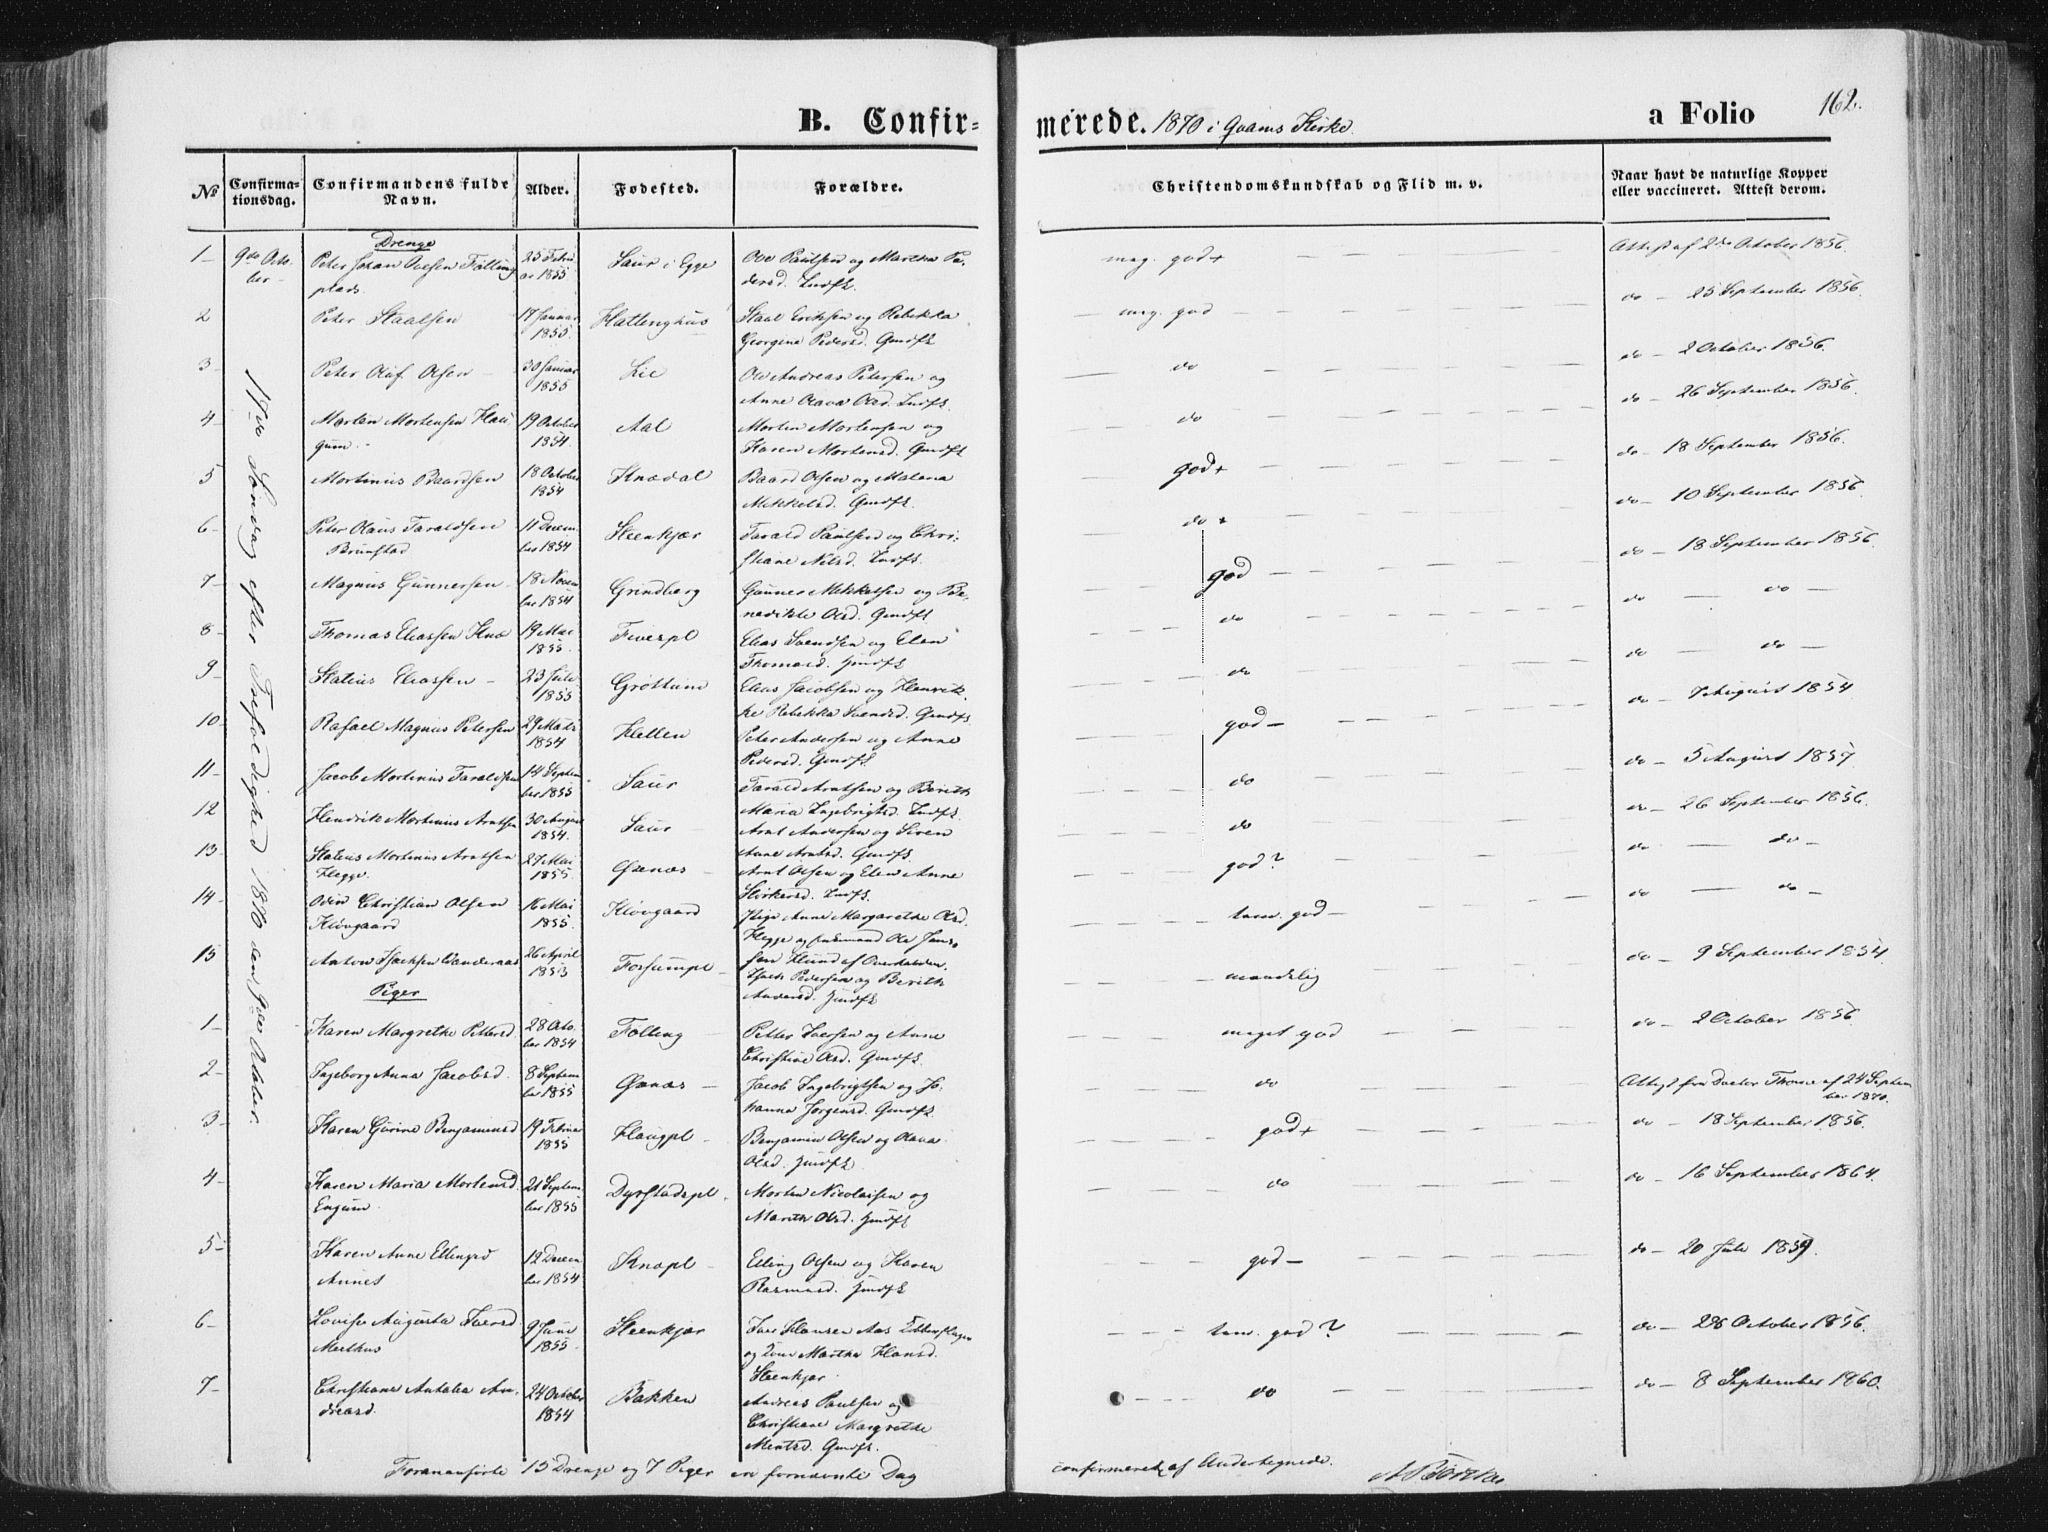 B. Confir-
merede. 1870 i Qvams Kirke.
a Folio 162.
№ Confirma-tionsdag. Confirmandens fulde Navn. Alder. Fødested. Forældre. Christendomskundskab og Flid m. v. Naar havt de naturlige Kopper eller vaccineret. Attest derom.
9de Octo-ber
17de Søndag efter Trefoldighed 1870 den 9de October.
Drenge
1 Peter Johan Olesen Følling plads. 25 Febru ar 1855 Saur i Egge Ole Paulsen og Martha Pe-dersd. Indst. mag. god+ Attest af 2de October 1856.
2 Peter Staalsen 17 Januar 1855. Hatlinghus Staal Eriksen og Rebekka Georgine Pedersd. Gmdfk meg. god do — 25 September 1856.
3 Peter Oluf Olsen 30 Januar 1855 Lie Ole Andreas Petersen og Anne Olava Olsd. Indfk. do do — 2 October 1856.
4 Morten Mortensen Hau gum. 19 October 1854. Aal Morten Mortensen og Karen Mortensd. Gmdfk do do — 26 September 1856.
5 Mortinus Baardsen 18 October 1854 Knædal Baard Olsen og Malena Mikkelsd. Gmdfk. god+ do — 18 September 1856.
6 Peter Olaus Taraldsen Brunstad 11 Decem ber 1854 Steenkjær Tarald Paulsen og Chri-stiane Nilsd. Indfk. do + do — 10 September 1856.
7 Magnus Gunnersen 18 Novem ber 1854 Grindberg Gunner Mikkelsen og Be-nedikte Olsd. Gmdfk god do — 18 September 1856.
8 Thomas Eliassen Knæ 19 Mai 1855 Fiverpl Elias Svendsen og Elen Thomasd. Hmdfk do do — do —
9 Statius Eliassen 23 Juli 1855 Grøttum Elias Jacobsen og Henrik-ke Rebekka Svendsd. Gmdfk do do — do —
10 Rafael Magnus Petersen 29 Marts 1854 Hetten Peter Andersen og Anne Pedersd. Gmdfk. god — do — 7 August 1854.
11 Jacob Mortinus Taraldsen 14 Septem ber 1855 Saur Tarald Arntsen og Bereth Maria Ingebrigtsd. Indfk. do do — 5 August 1857.
12 Hendrik Mortinus Arntsen 30 August 1854. Saur Arnt Andersen og Siren Anne Arntsd. Gmdfk. do do — 26 September 1856.
13 Statius Mortinus Arntsen Hegge. 27 Mai 1855. Gjenæs Arnt Olsen og Elen Anne Kirkersd. Indfk. god? do — do —
14 Odin Christian Olsen Kløvgaard 16 Mai 1855. Kløvgaard Pige Anne Margarethe Olsd. Hegge og Enkemand Ole Jans-sen Hlund af Overhalden. tem. god — do — do —
15 Anton Isachsen Vanderaas 26 April 1853 Fossumpl Isach Pedersen og Bereth Andersd. Hmdfk maadelig do — 9 September 1854.
Piger
1 Karen Margrethe Pettersd 28 Octo-ber 1854 Følling Petter Iversen og Anne Christine Olsd. Gmdfk. meget god do — 2 October 1856.
2 Ingeborg Anna Jacobsd. 8 Septem ber 1855 Gjenæs Jacob Ingebrigtsen og Jo-hanna Jørgensd. Gmdfk. do Attest fra Doctor Thome af 24 Septem ber 1870.
3 Karen Gurine Benjaminsd 19 Februar 1855 Haugpl Benjamin Olsen og Olava Olsd. Hmdfk. god+ do — 18 September 1856.
4 Karen Maria Mortensd. Engum. 21 Septem ber 1855 Dyrstadspl Morten Nicolaisen og Mareth Olsd. Hmdfk do do — 16 September 1864.
5 Karen Anne Ellingsd Aunet 12 Decem ber 1854 Knapl Elling Olsen og Karen Rasmusd. Hmdfk god — do — 20 Juli 1859.
6 Lovise Augusta Iversd. Meethus 9 Juni 1855 Steenkjær Iver Hansen Aas og Kone Marthe Hansd. Steenkjær tem. god? do — 28 October 1856.
7 Christiane Antalia An-dreasd. 24 October 1854 Bakken Andreas Paulsen og Christiane Margrethe Mentsd. Gmdfk. do do — 8 September 1860.
Forananførte 15 Drenge og 7 Piger ere fornævnte Dag
confirmeret af Undertegnede.